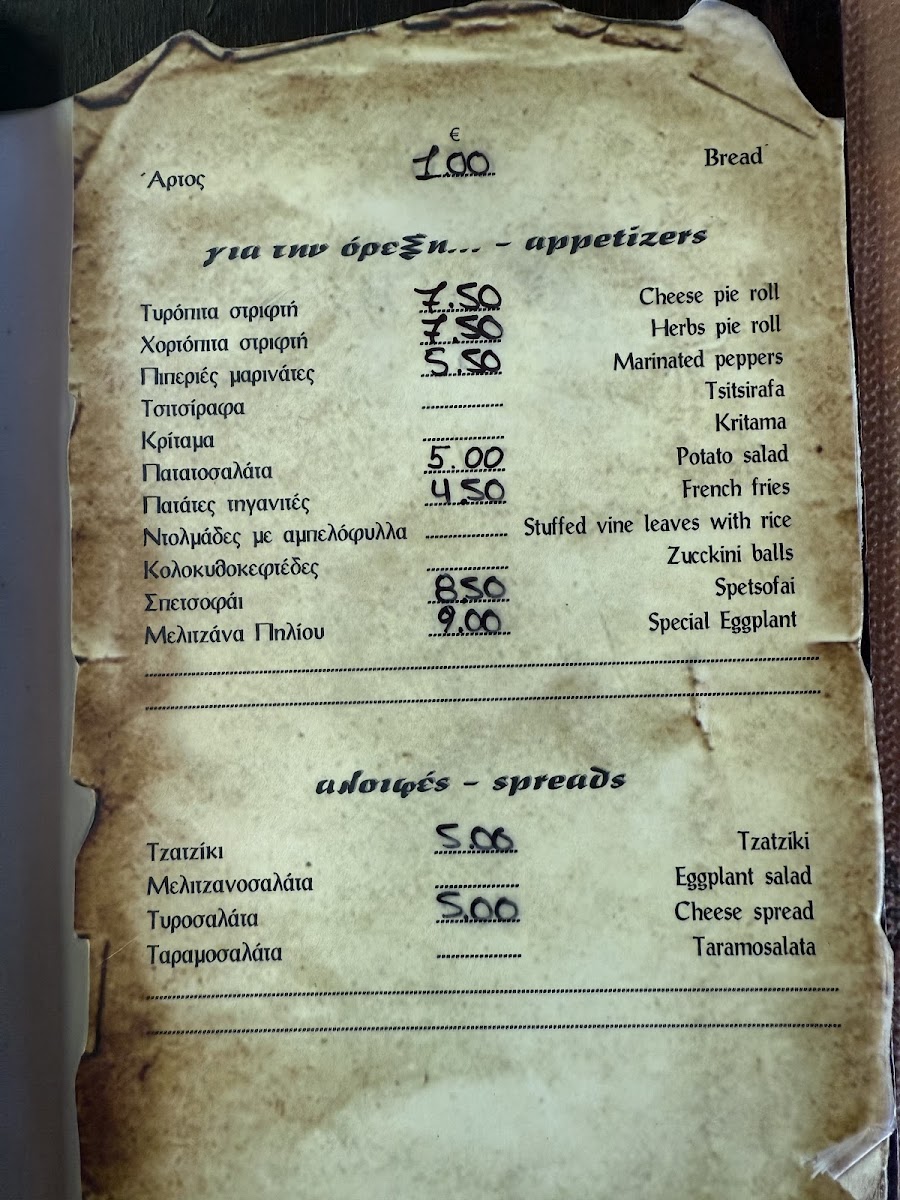 €
Άρτος 1.00 Bread
για την όρεξη... - appetizers
Τυρόπιτα στριφτή 7.50 Cheese pie roll
Χορτόπιτα στριφτή 7.50 Herbs pie roll
Πιπεριές μαρινάτες 5.50 Marinated peppers
Τσιτσίραφα Tsitsirafa
Κρίταμα Kritama
Πατατοσαλάτα 5.00 Potato salad
Πατάτες τηγανιτές 4.50 French fries
Ντολμάδες με αμπελόφυλλα Stuffed vine leaves with rice
Κολοκυθοκεφτέδες Zucckini balls
Σπετσοφάι 8.50 Spetsofai
Μελιτζάνα Πηλίου 9.00 Special Eggplant
αλοιφές - spreads
Τζατζίκι 5.00 Tzatziki
Μελιτζανοσαλάτα Eggplant salad
Τυροσαλάτα 5.00 Cheese spread
Ταραμοσαλάτα Taramosalata